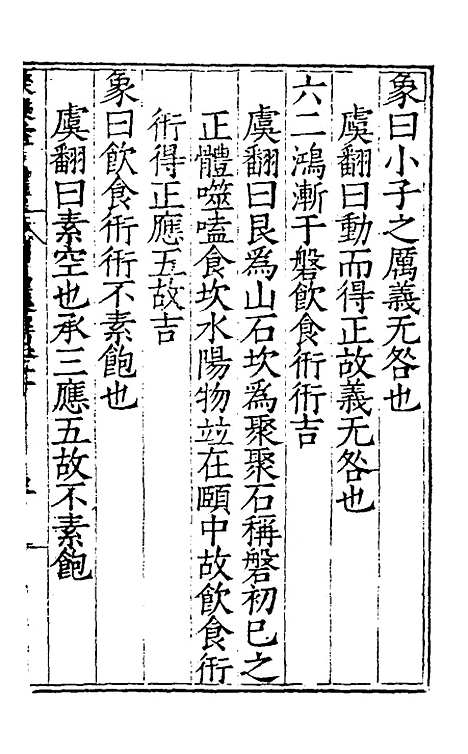 象曰小子之厲義无咎也
虞翻曰動而得正故義无咎也
六二鴻漸于磐飲食衎衎吉
虞翻曰艮爲山石坎爲聚聚石稱磐初已之
正體噬嗑食坎水陽物竝在頤中故飲食衎
衎得正應五故吉
象曰飲食衎衎不素飽也
虞翻曰素空也承三應五故不素飽